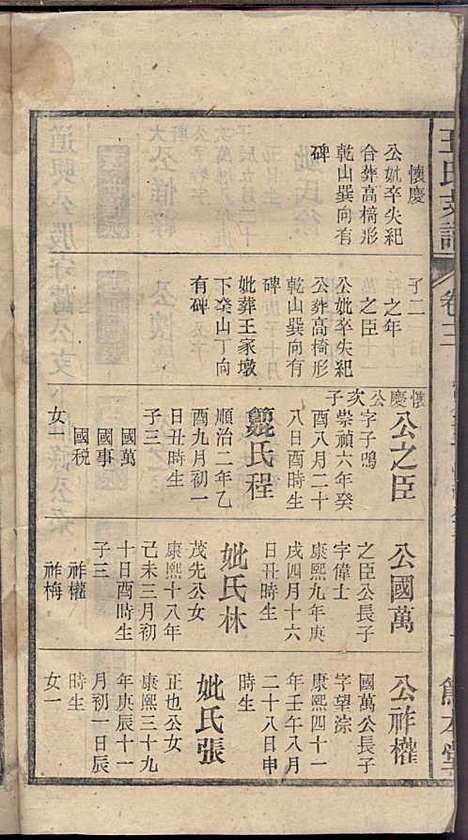 王氏支譜
卷三
懷慶
公妣卒失紀
合葬高椅形
乾山巽向有
碑
子二
之年
之臣
公妣卒失紀
公葬高椅形
乾山巽向有
碑
妣葬王家墩
下癸山丁向
有碑
懷慶公次子
公之臣
字子鳴
崇禎六年癸
酉八月二十
八日酉時生
氏程
順治二年乙
酉九月初一
日丑時生
子三
國萬
國事
國税
女一
公國萬
之臣公長子
字偉士
康熙九年庚
戌四月十六
日丑時生
妣氏林
茂先公女
康熙十八年
己未三月初
十日酉時生
子三
祚權
祚梅
公祚權
國萬公長子
字望淙
康熙四十一
年壬午八月
二十八日申
時生
妣氏張
正也公女
康熙三十九
年庚辰十一
月初一日辰
時生
女一